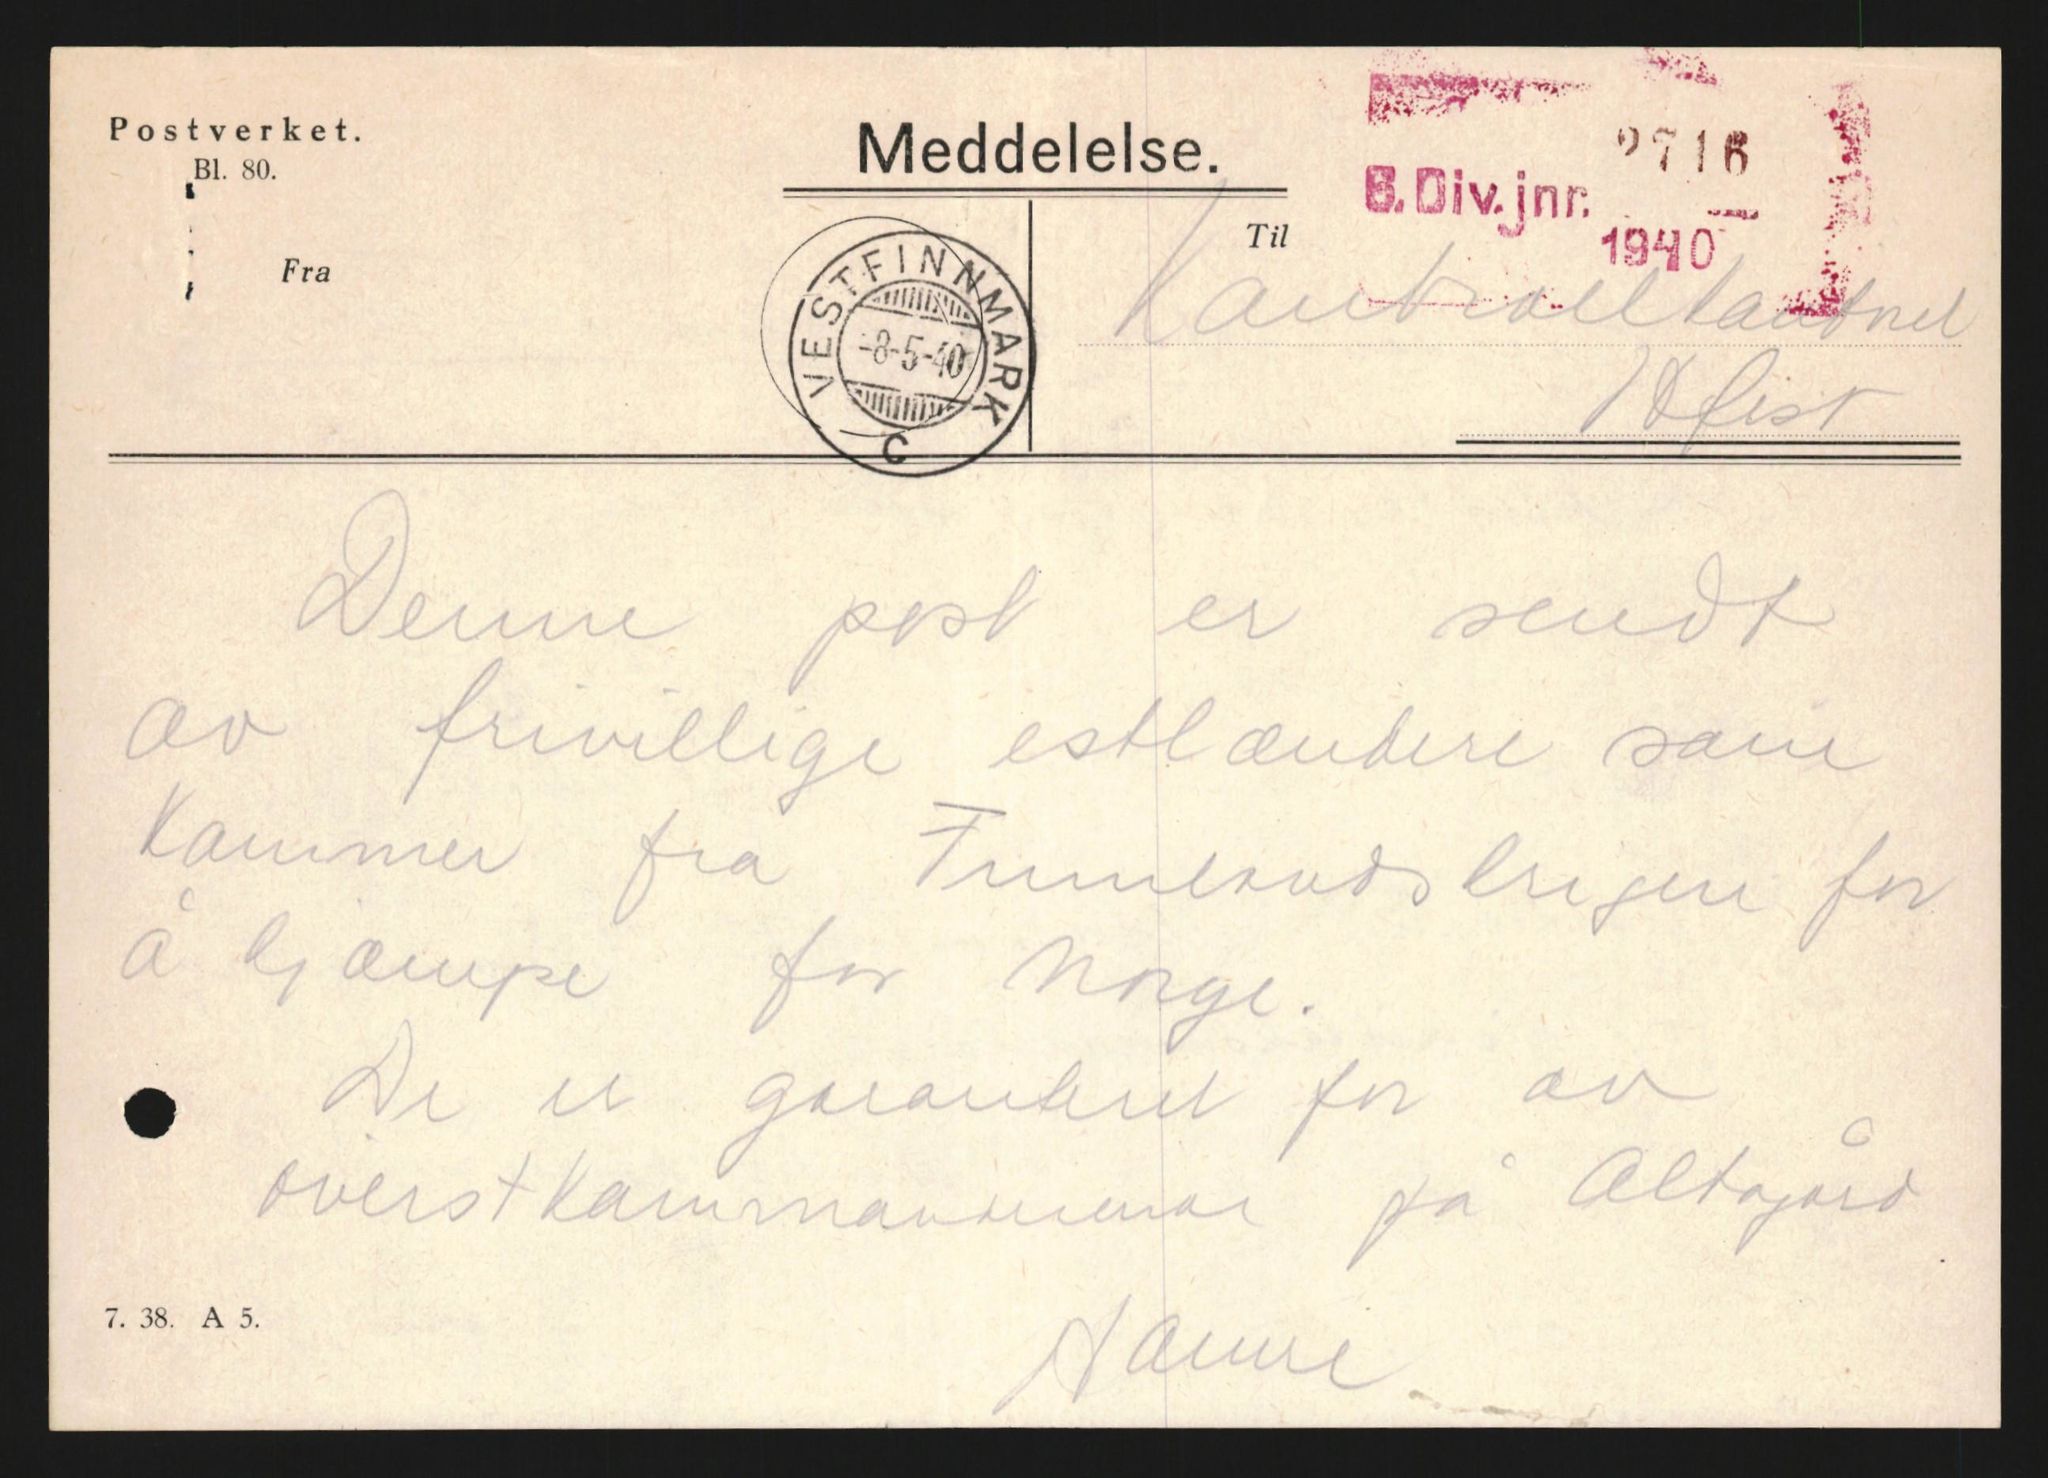 Postverket.
Bl. 80.
Meddelelse.
2716
6. Div. jnr.
1940
Fra
Til
VESTFINNMARK
-8-5-40
C
Kontrollkontoret
Hfest
Denne post er sendt
av frivillige estlændere som
kommer fra Finnlandskrigen for
å kjæmpe for Norge.
De er garanteret for av
överstkommanderende på Altagård
7. 38. A 5.